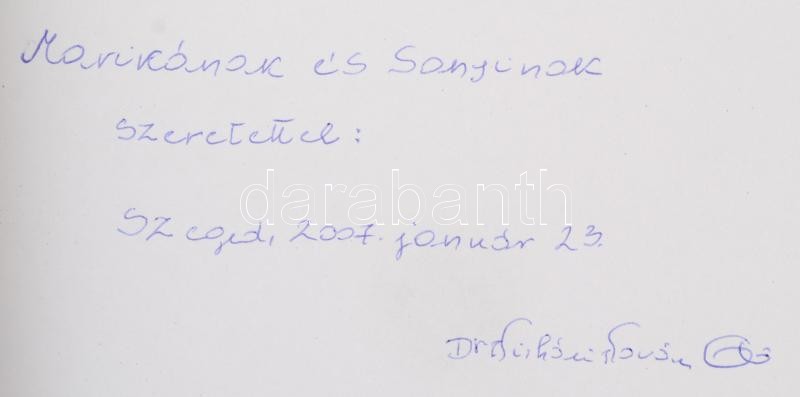 Marikának és Sanyinak
Szeretettel:
darabanth
Szeged, 2007. január 23.
Dr